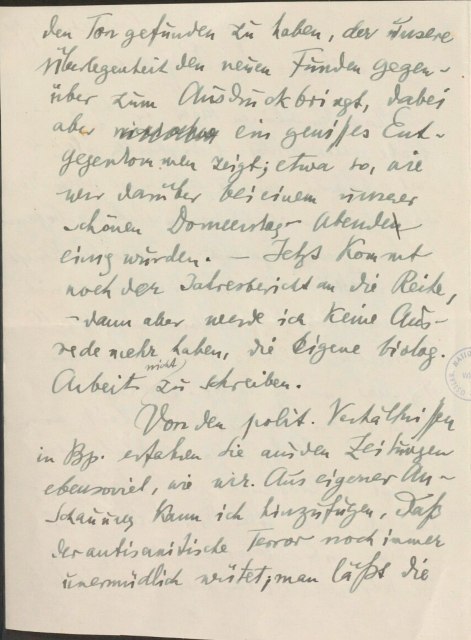 den Ton gefunden zu haben, der unsere
Überlegenheit den neuen Funden gegen-
über zum Ausdruck bringt, dabei
aber ein gewisses Ent-
gegenkommen zeigt; etwa so, wie
wir darüber bei einem unserer
schönen Donnerstag-Abenden
einig wurden. – Jetzt kommt
noch der Jahresbericht an die Reihe,
– dann aber werde ich keine Aus-
rede mehr haben, die eigene biolog.
Arbeit nicht zu schreiben.
Von den polit. Verhältnissen
in Bp. erfahren Sie aus den Zeitungen
ebensoviel, wie wir. Aus eigener An-
schauung kann ich hinzufügen, daß
der antisemitische Terror noch immer
unermüdlich wütet; man läßt die